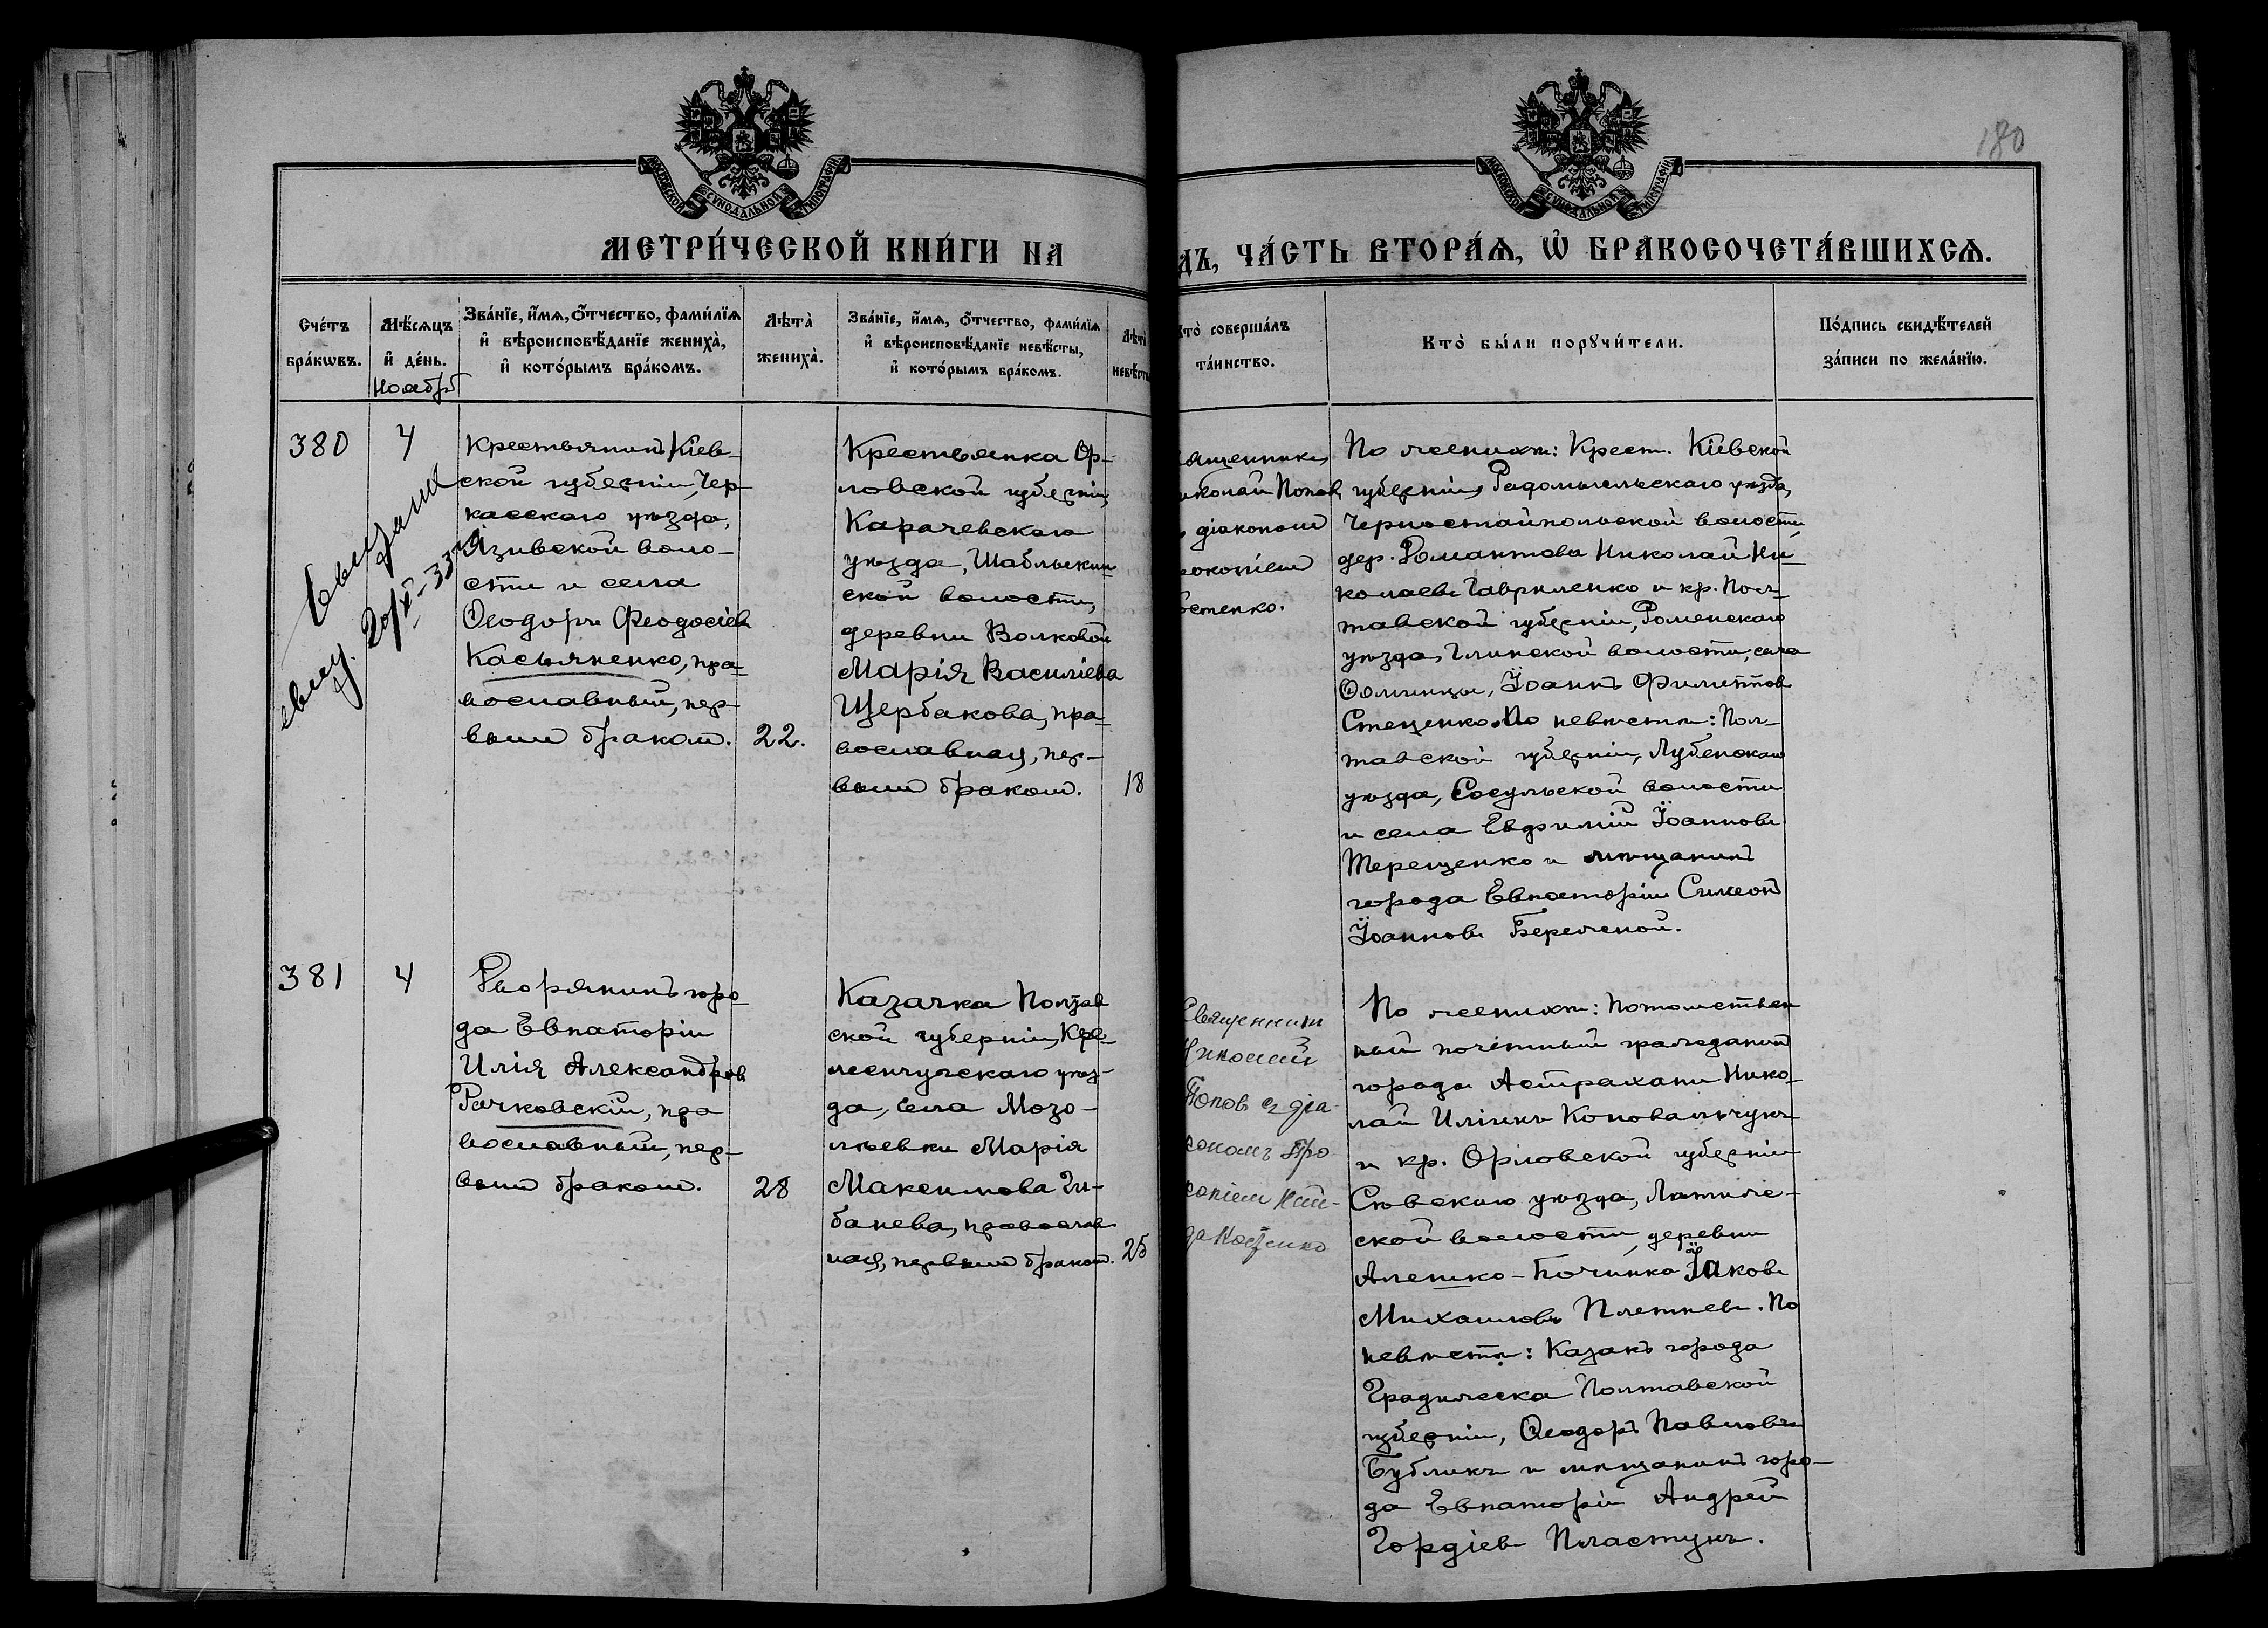 180
МОСКОВСКОЙ СѴНОДАЛЬНОЙ ТИПОГРАФІИ
МОСКОВСКОЙ СѴНОДАЛЬНОЙ ТИПОГРАФІИ
МЕТРИ́ЧЕСКОЙ КНИ́ГИ НА
ДЪ, ЧА́СТЬ ВТОРА́Ѧ, Ѡ҆ БРАКОСОЧЕТА́ВШИХСѦ.
Сче́тъ
бра́кѡвъ.
Мѣ́сѧцъ
и҆ де́нь.
Ноябрь
Зва́нїе, и҆́мѧ, ѻ҆́тчество, фами́лїѧ
и҆ вѣроисповѣ́данїе жениха̀,
и҆ кото́рымъ бра́комъ.
Лѣта̀
жениха̀.
Зва́нїе, и҆́мѧ, ѻ҆́тчество, фами́лїѧ
и҆ вѣроисповѣ́данїе невѣ́сты,
и҆ кото́рымъ бра́комъ.
Лѣта̀
невѣ́сты
Кто̀ соверша́лъ
та́инство.
Кто̀ бы́ли порꙋчи́тели.
По́дпись свидѣ́телей
за́писи по жела́нїю.
380
4
20/XI-33
Крестьянинъ Кіев-
ской губерніи, Чер-
касскаго уѣзда,
Язивской воло-
сти и села
Ѳеодоръ Ѳеодосіевъ
Касьяненко, пра-
вославный, пер-
вымъ бракомъ.
22.
Крестьянка Ор-
ловской губерніи,
Карачевскаго
уѣзда, Шаблыкин-
ской волости,
деревни Волковой
Марія Василіева
Щербакова, пра-
вославная, пер-
вымъ бракомъ.
18
ященникъ
иколай Поповъ
діакономъ
окопіемъ
стенко.
По женихѣ: Крест. Кіевской
губерніи, Радомысльскаго уѣзда,
Черностайпольской волости
дер. Романтова Николай Ни-
колаевъ Гавриленко и кр. Пол-
тавской губерніи, Роменскаго
уѣзда, Глинской волости, села
Іоаннъ Филипповъ
Стеценко. По невѣстѣ: Пол-
тавской губерніи, Лубенскаго
уѣзда, Снѣтинской волости
и села Евфимій Іоанновъ
Терещенко и мѣщанинъ
города Евпаторіи Симеонъ
Іоанновъ Бережной.
381
4
Дворянинъ горо-
да Евпаторіи
Илія Александровъ
Рачковскій, пра
вославный, пер-
вымъ бракомъ.
28
Казачка Полтав
ской губерніи, Кре-
менчугскаго уѣз-
да, села Мозо-
лѣевки Марія
Максимова Ги-
банева, православ
ная, первымъ бракомъ.
25
Священникъ
Николай
Поповъ съ діа-
кономъ Про
копіемъ Най-
да Костенко
По женихѣ: Потомствен
ный почетный гражданинъ
города Астрахани Нико-
лай Иліинъ Коновальчукъ
и кр. Орловской губерніи
Сѣвскаго уѣзда,
ской волости, деревни
Алешко-Починка Іаковъ
Михаиловъ Плетневъ. По
невѣстѣ: Казакъ города
Градижска Полтавской
губерніи, Ѳеодоръ Павловъ
Бубликъ и мѣщанинъ горо-
да Евпаторіи Андрей
Гордіевъ Пластунъ.